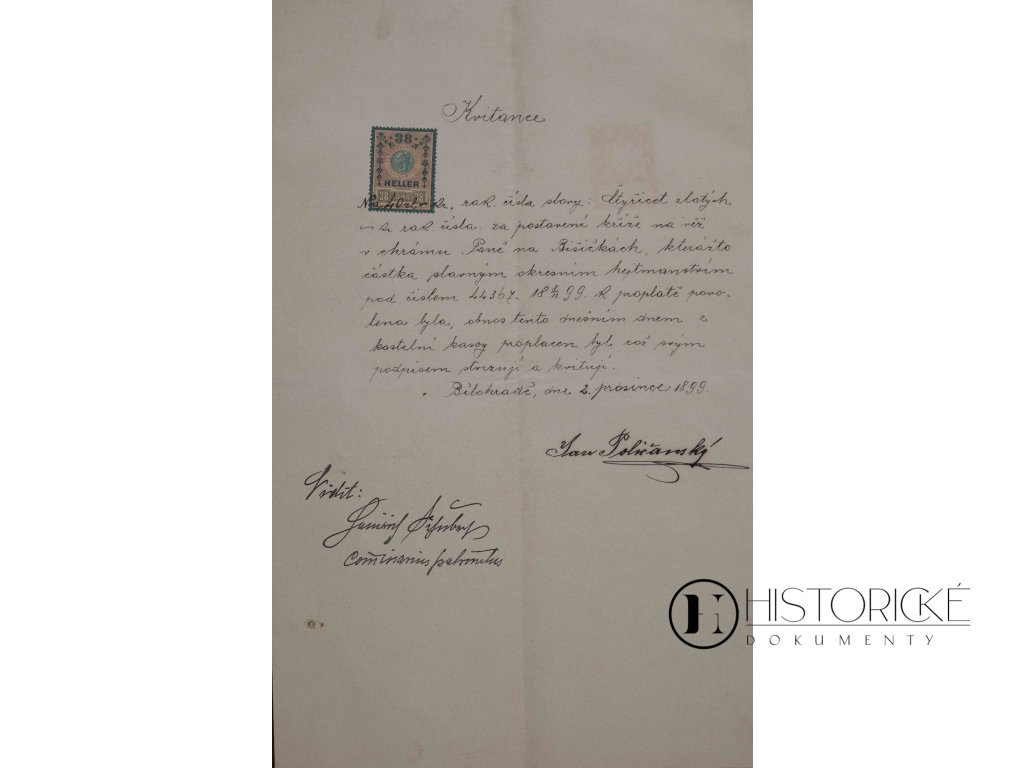 Kvitance
38
HELLER
38 38
Na 40 zl – kr. rak. čísla slovy: Čtyřicet zlatých
– kr rak. čísla za postavení kříže na věž
v chrámu Páně na Bišičkách, kterážto
částka slavným okresním hejtmanstvím
pod číslem 44367. 18 99. k proplatě povo-
lena byla, obnos tento dnešním dnem z
kostelní kassy proplacen byl což svým
podpisem stvrzuji a kvituji.
Bělohradě, dne 2. prosince 1899.
Jan Poličanský
Vidit:
Heinrich Schubert
HISTORICKÉ
DOKUMENTY